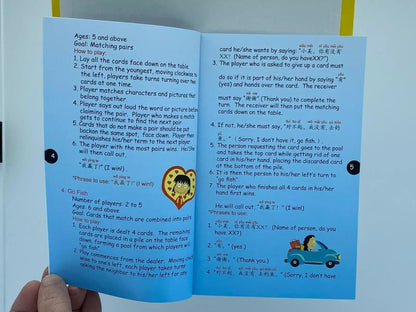 Ages: 5 and above
Goal: Matching pairs
How to play:
1. Lay all the cards face down on the table.
2. Start from the youngest, moving clockwise to
the left, players take turns turning over two
cards at one time.
3. Player matches characters and pictures that
belong together.
4. Player says out loud the word or picture before
claiming the pair. Player who makes a match
gets to continue to find the next pair.
5. Cards that do not make a pair should be put
back on the same spot, face down. Player then
relinquishes his/her term to the next player.
6. The player with the most pairs wins. He/She
will then call out,
"我赢了!" (I win!)
*Phrase to use: "我赢了!" (I win!)
4
4. Go Fish
Number of players: 2 to 5
Ages: 6 and above
Goal: Cards that match are combined into pairs
How to play:
1. Each player is dealt 4 cards. The remaining
cards are placed in a pile on the table face
down, forming a pool from which players will
"go fish".
2. Play commences from the dealer. Moving clock
wise to one's left, each player takes turns
asking the neighbor to his/her left for any
card he/she wants by saying: "小美, 你有没有
XX? (Name of person, do you have XX?")
3. The player who is asked to give up a card must
do so if it is part of his/her hand by saying "有"
(yes) and hands over the card. The receiver
must say "谢谢" (Thank you) to complete the
turn. The receiver will then put the matching
cards down on the table.
4. If not, he/she must say, "对不起, 我没有, 去钓
鱼。" (Sorry, I don't have it, go fish.)
5. The person requesting the card goes to the pool
and takes the top card while getting rid of one
card in his/her hand, placing the discarded card
at the bottom of the pile.
6. It is then the person to his/her left's turn to
"go fish".
7. The player who finishes all 4 cards in his/her
hand first wins.
He will call out, "我赢了!" (I win!)
*Phrases to use:
1. "小美, 你有没有XX? (Name of person, do you
have XX?
2. "有。" (yes.)
3. "谢谢。" (Thank you.)
4. "对不起, 我没有, 去钓鱼。" (Sorry, I don't have
5